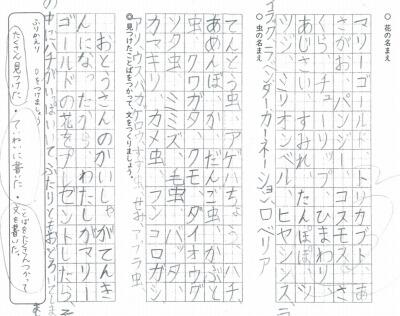 ○ 花の名まえ
マリーゴールド、トリカブト、あ
さがお、パンジー、コスモス、さ
くら、チューリップ、ひまわり、
あじさい、すみれ、たんぽぽ、ツ
ツジ、ミリオンベル、ヒヤシンス、ラ
ラベンダー、カーネーション、ロベリア
○ 虫の名まえ
てんとう虫、アゲハちょう、ハチ、
あめんぼ、か、だんご虫、かぶと
虫、クワガタ、クモ、ダイオウグ
ソク虫、ミミズ、毛虫、バッタ、
カマキリ、カメ虫、フンコロガシ
せみ、アブラ虫
◎ 見つけたことばをつかって、文をつくりましょう。
おとうさんのかいしゃがてんき
んになったから、わたしがマリー
ゴールドの花をプレゼントしたら、そ
の中にハチがいっぱいいて、ふたりともおどろいてしま
ふりかえり ○をつけましょう。
たくさん見つけた ・ ていねいに書いた ・ ことばをたくさんつかって文を書いた。